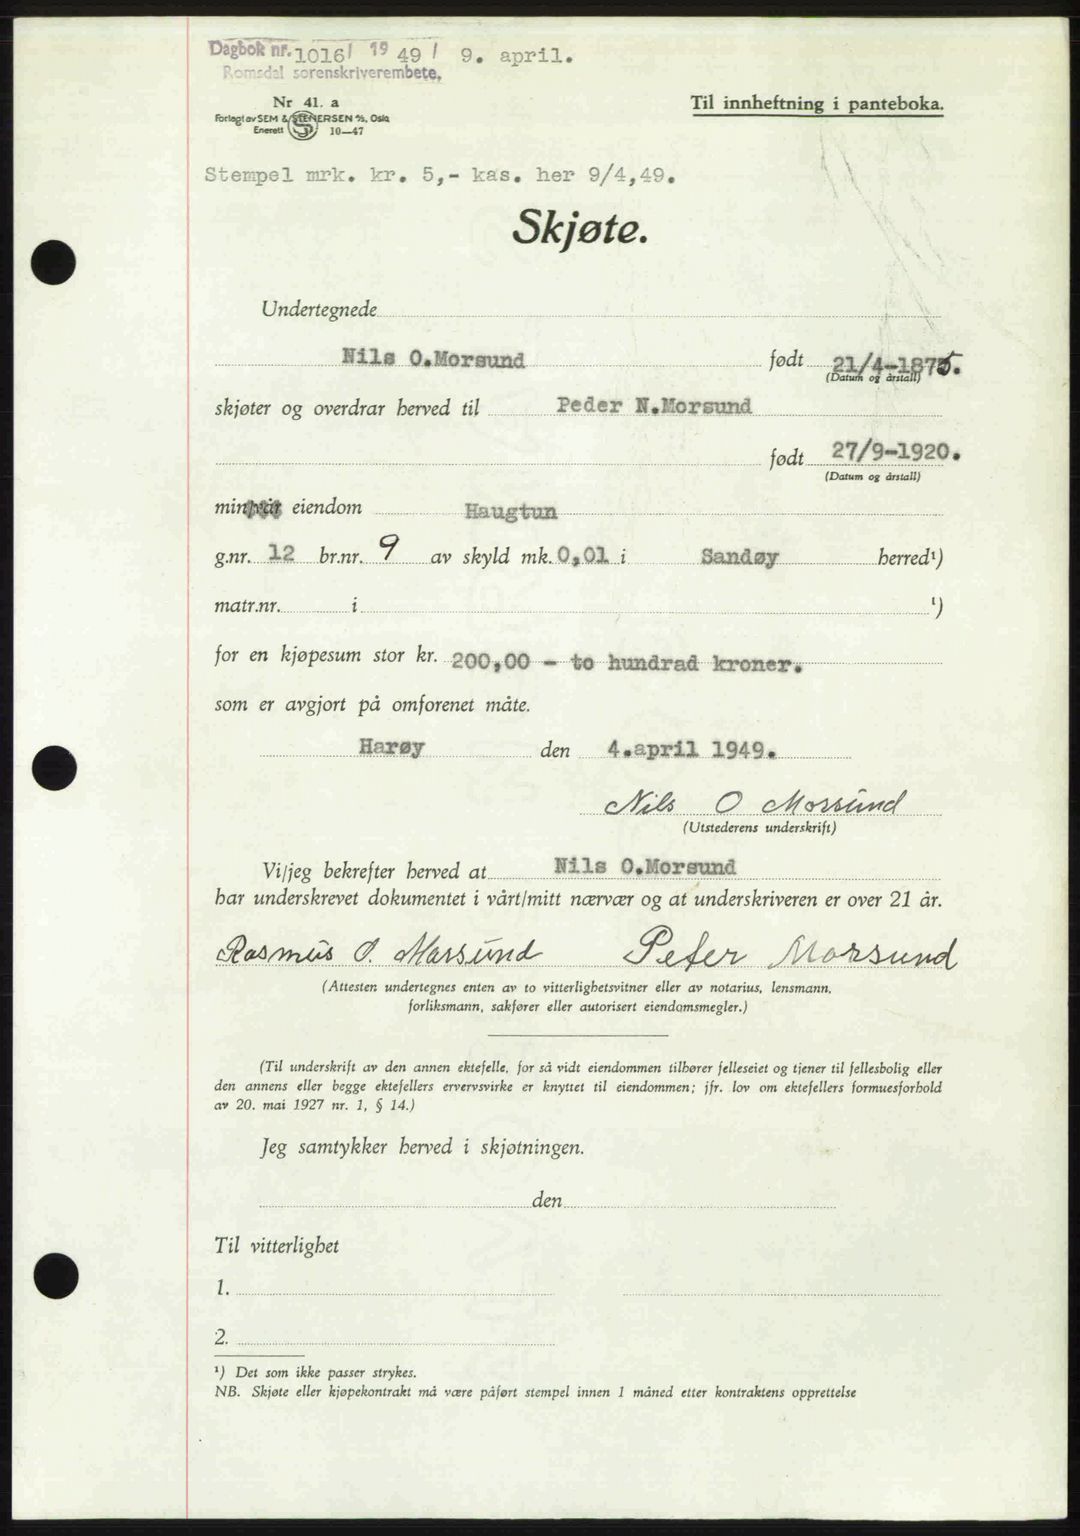 Dagbok nr. 1016/ 1949/ 9. april.
Romsdal sorenskriverembete.
Nr 41. a
Til innheftning i panteboka.
Forlagt av SEM & STENERSEN A/S, Oslo
Enerett 10—47
Stempel mrk. kr. 5,- kas. her 9/4,49.
Skjøte.
Undertegnede
Nils O.Morsund født 21/4-1875.
(Datum og årstall)
skjøter og overdrar herved til Peder N.Morsund
født 27/9-1920.
(Datum og årstall)
min/vår eiendom Haugtun
g.nr. 12 br.nr. 9 av skyld mk. 0,01 i Sandøy herred¹)
matr.nr. i ¹)
for en kjøpesum stor kr. 200,00 - to hundrad kroner.
som er avgjort på omforenet måte.
Harøy den 4.april 1949.
Nils O Morsund
(Utstederens underskrift)
Vi/jeg bekrefter herved at Nils O.Morsund
har underskrevet dokumentet i vårt/mitt nærvær og at underskriveren er over 21 år.
Rasmus O. Morsund Peter Morsund
(Attesten undertegnes enten av to vitterlighetsvitner eller av notarius, lensmann,
forliksmann, sakfører eller autorisert eiendomsmegler.)
(Til underskrift av den annen ektefelle, for så vidt eiendommen tilhører felleseiet og tjener til fellesbolig eller
den annens eller begge ektefellers ervervsvirke er knyttet til eiendommen; jfr. lov om ektefellers formuesforhold
av 20. mai 1927 nr. 1, § 14.)
Jeg samtykker herved i skjøtningen.
den
Til vitterlighet
1.
2.
¹) Det som ikke passer strykes.
NB. Skjøte eller kjøpekontrakt må være påført stempel innen 1 måned etter kontraktens opprettelse